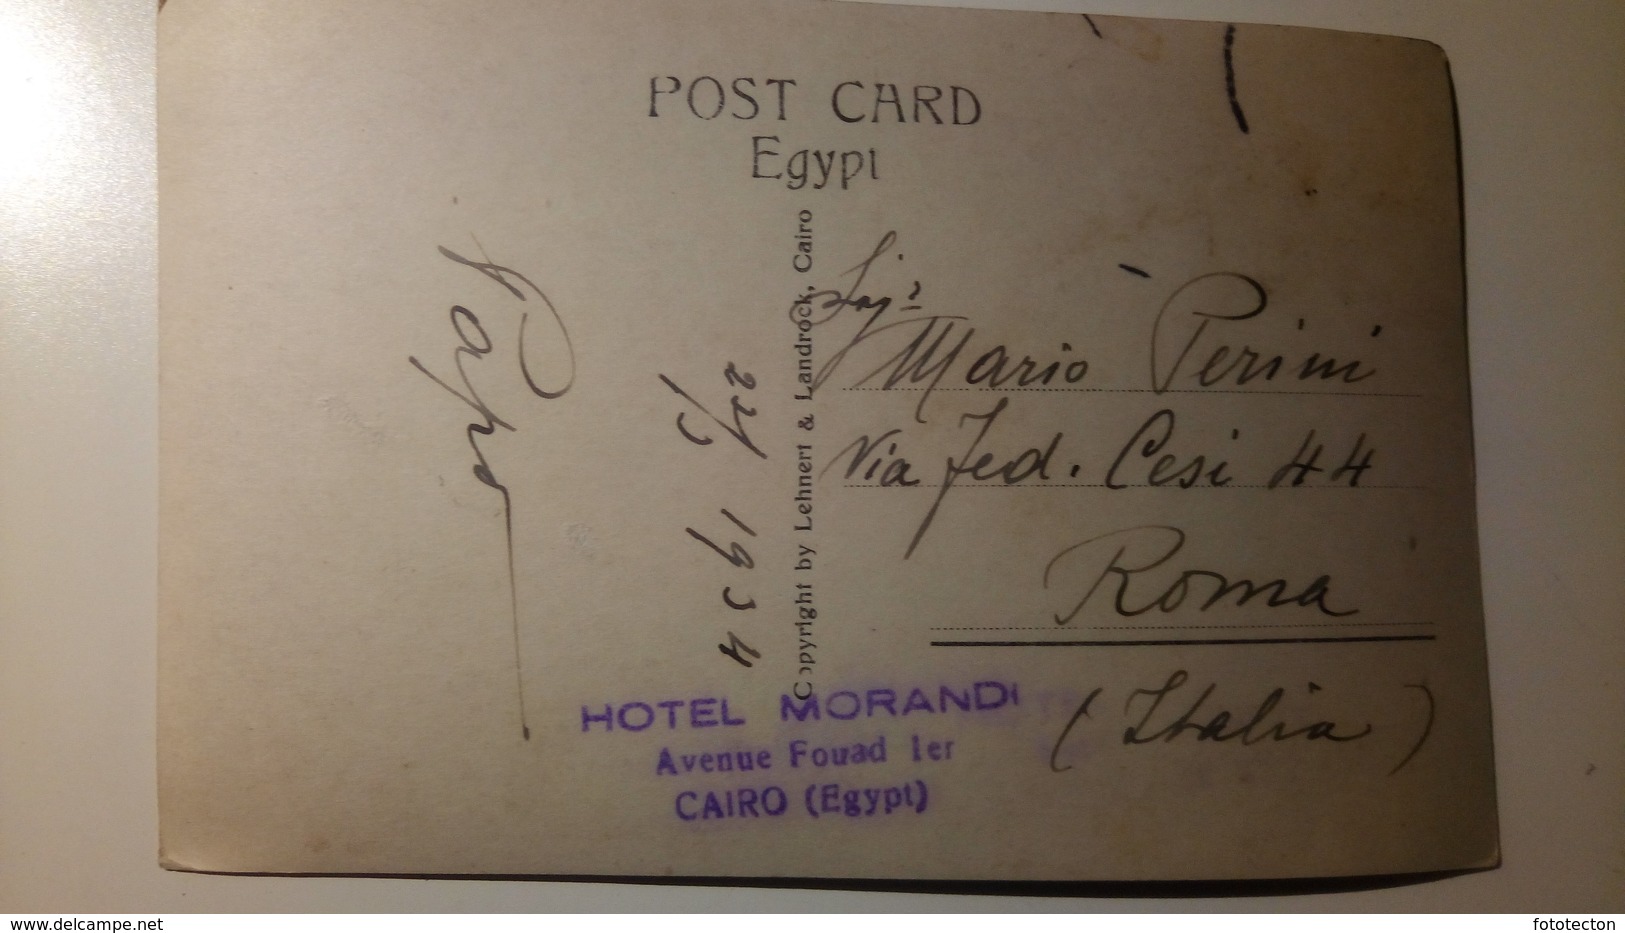 POST CARD
Egypt
Copyright by Lehnert & Landrock, Cairo
Mario Perini
Via Fed. Cesi 44
Roma
(Italia)
1954
HOTEL MORANDI
Avenue Fouad 1er
CAIRO (Egypt)
fototecton
www.delcampe.net